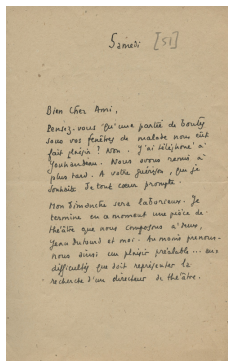 Samedi [51]
Bien Cher Ami,
Pensez-vous qu'une partie de boules
sous vos fenêtres de malade nous eût
fait plaisir ? Non. J'ai téléphoné à
Jouhandeau. Nous avons remis à
plus tard. A votre guérison, que je
souhaite de tout cœur prompte.
Mon dimanche sera laborieux. Je
termine en ce moment une pièce de
théâtre que nous composons à deux,
Jean Dutourd et moi. Au moins prenons-
nous ainsi un plaisir préalable... aux
difficultés que doit représenter la
recherche d'un directeur de théâtre.